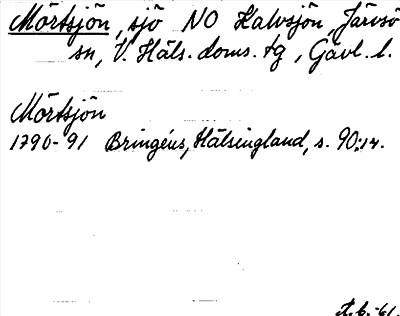 Mörtsjön, sjö NO Kalvsjön, Järvsö
sn, V. Häls. doms. tg, Gävl. l.
Mörtsjön
1790-91 Bringéus, Hälsingland, s. 90:14.